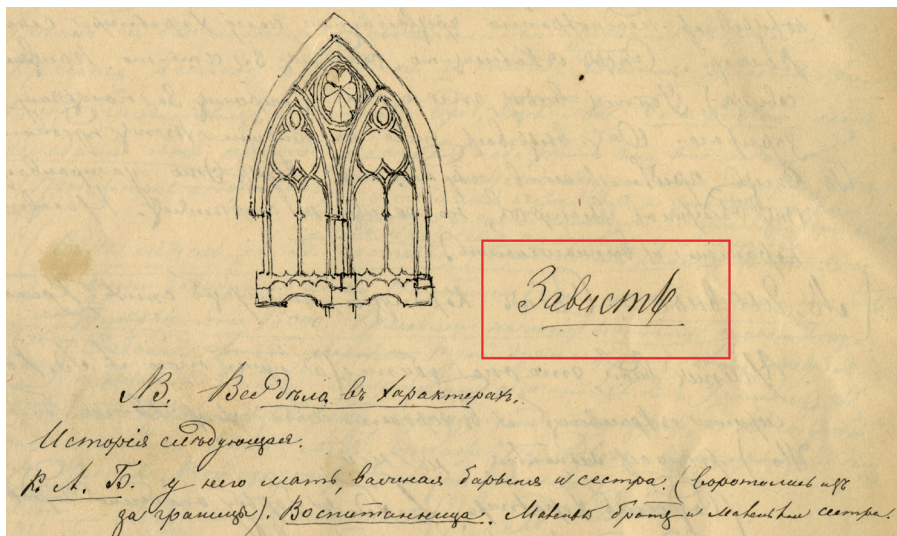 Зависть
NB. Все дѣло въ характерахъ.
Исторія слѣдующая.
К. А. Б. у него мать, важная барыня и сестра. (воротились изъ
за границы). Воспитанница. Маленькій братъ и маленькая сестра.